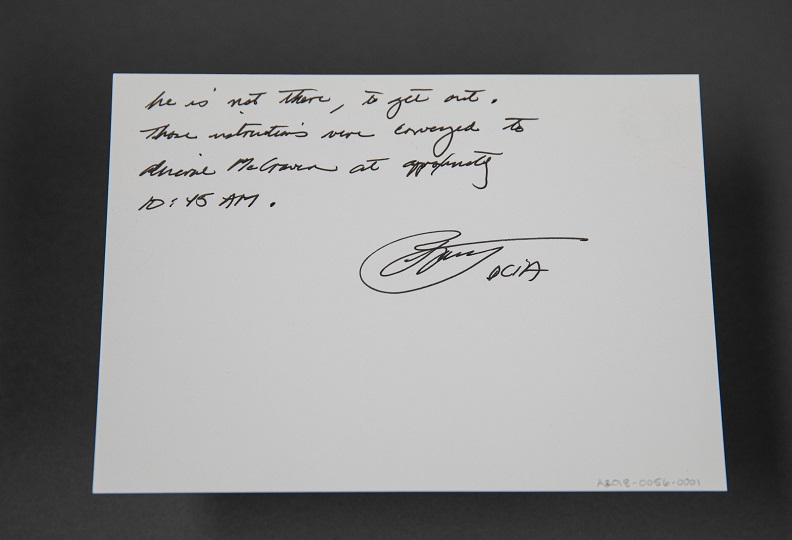 he is not there, to get out.
Those instructions were conveyed to
Admiral McRaven at approximately
10:45 AM.
DCIA